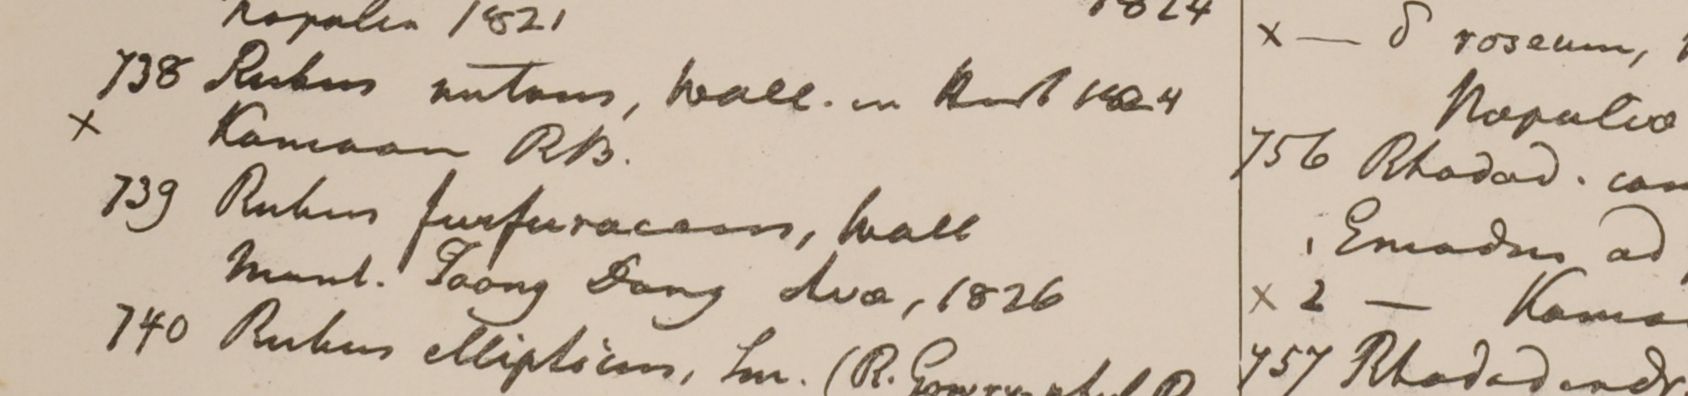 Napalia 1821 1824
738 Rubus nutans, Wall. in Hort 1824
x Kamaon RB.
739 Rubus furfuraceus, Wall
Mont. Taong Dong Ava, 1826
740 Rubus ellipticus, Sm. (R. Gowry-phul R
x — δ roseum,
Napalia
756 Rhodod. cam
Emodus ad
x 2 — Kamao
757 Rhododendr